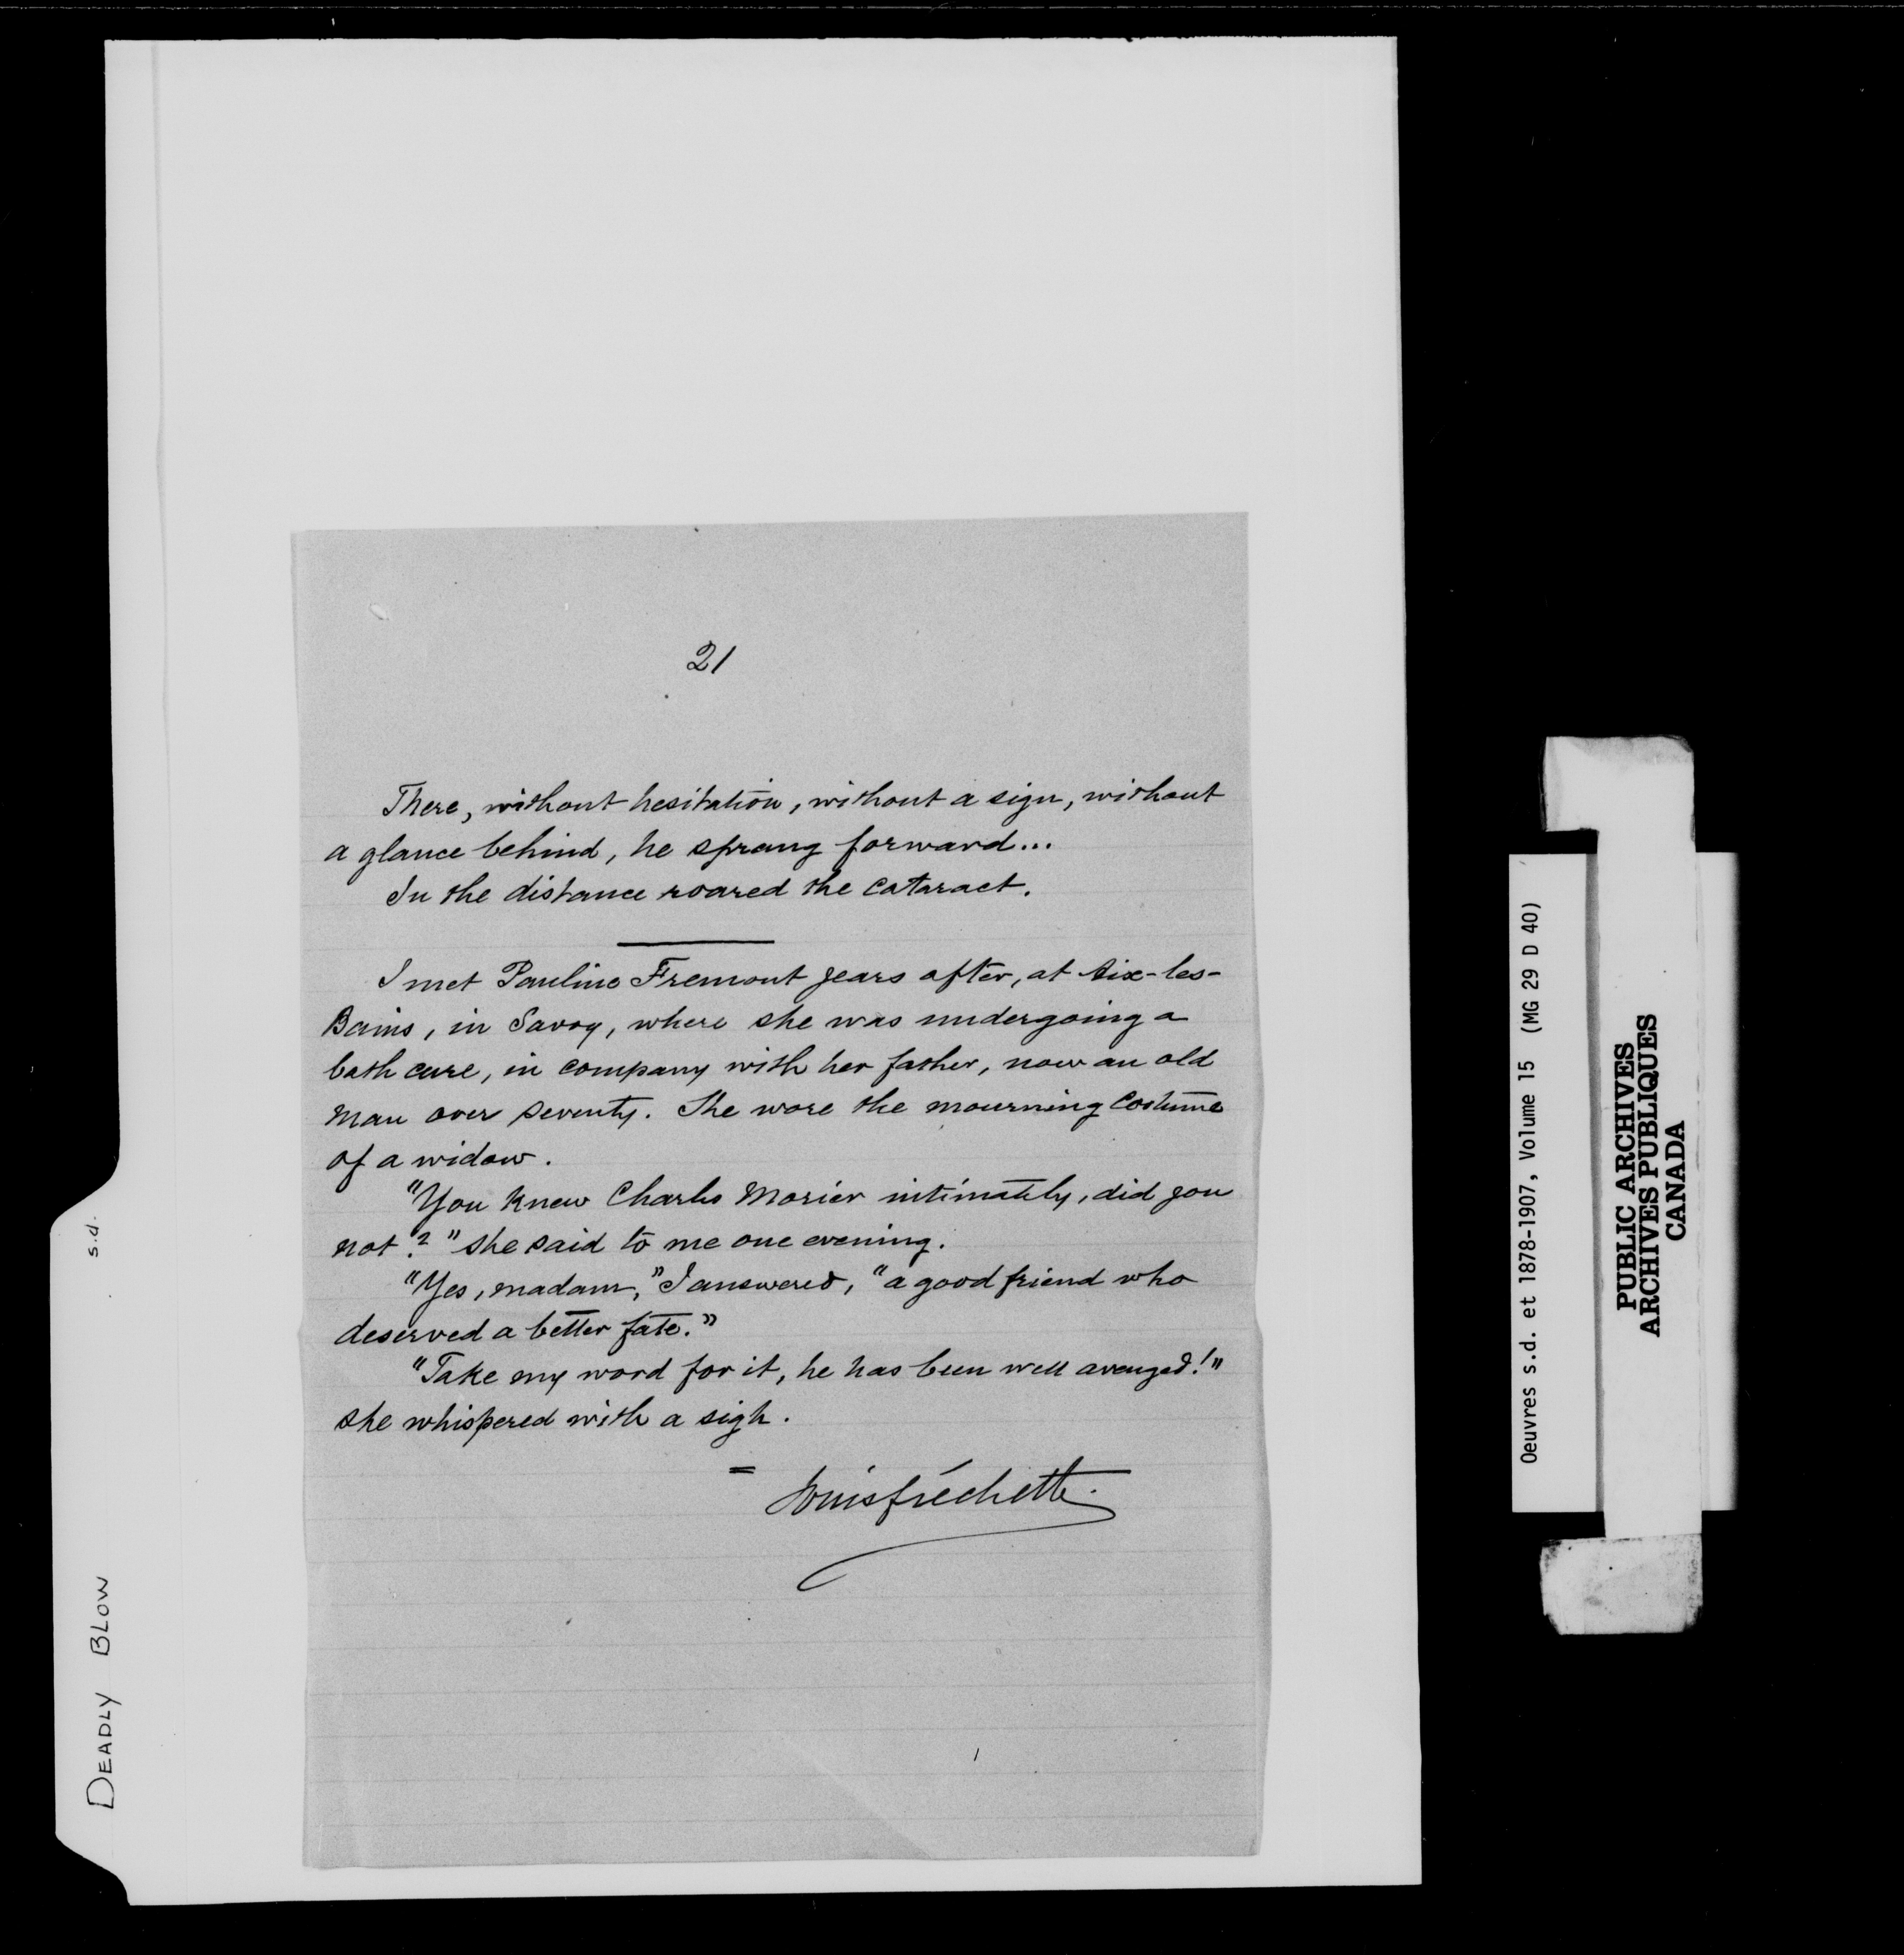 21
There, without hesitation, without a sign, without
a glance behind, he sprang forward...
In the distance roared the cataract.
I met Pauline Fremont years after, at Aix-les-
Bains, in Savoy, where she was undergoing a
bath cure, in company with her father, now an old
man over seventy. She wore the mourning costume
of a widow.
"You knew Charles Morier intimately, did you
not?" she said to me one evening.
"Yes, madam," I answered, "a good friend who
deserved a better fate."
"Take my word for it, he has been well avenged!"
she whispered with a sigh.
Louis Fréchette.
DEADLY BLOW s.d.
Oeuvres s.d. et 1878-1907, Volume 15 (MG 29 D 40)
PUBLIC ARCHIVES
ARCHIVES PUBLIQUES
CANADA